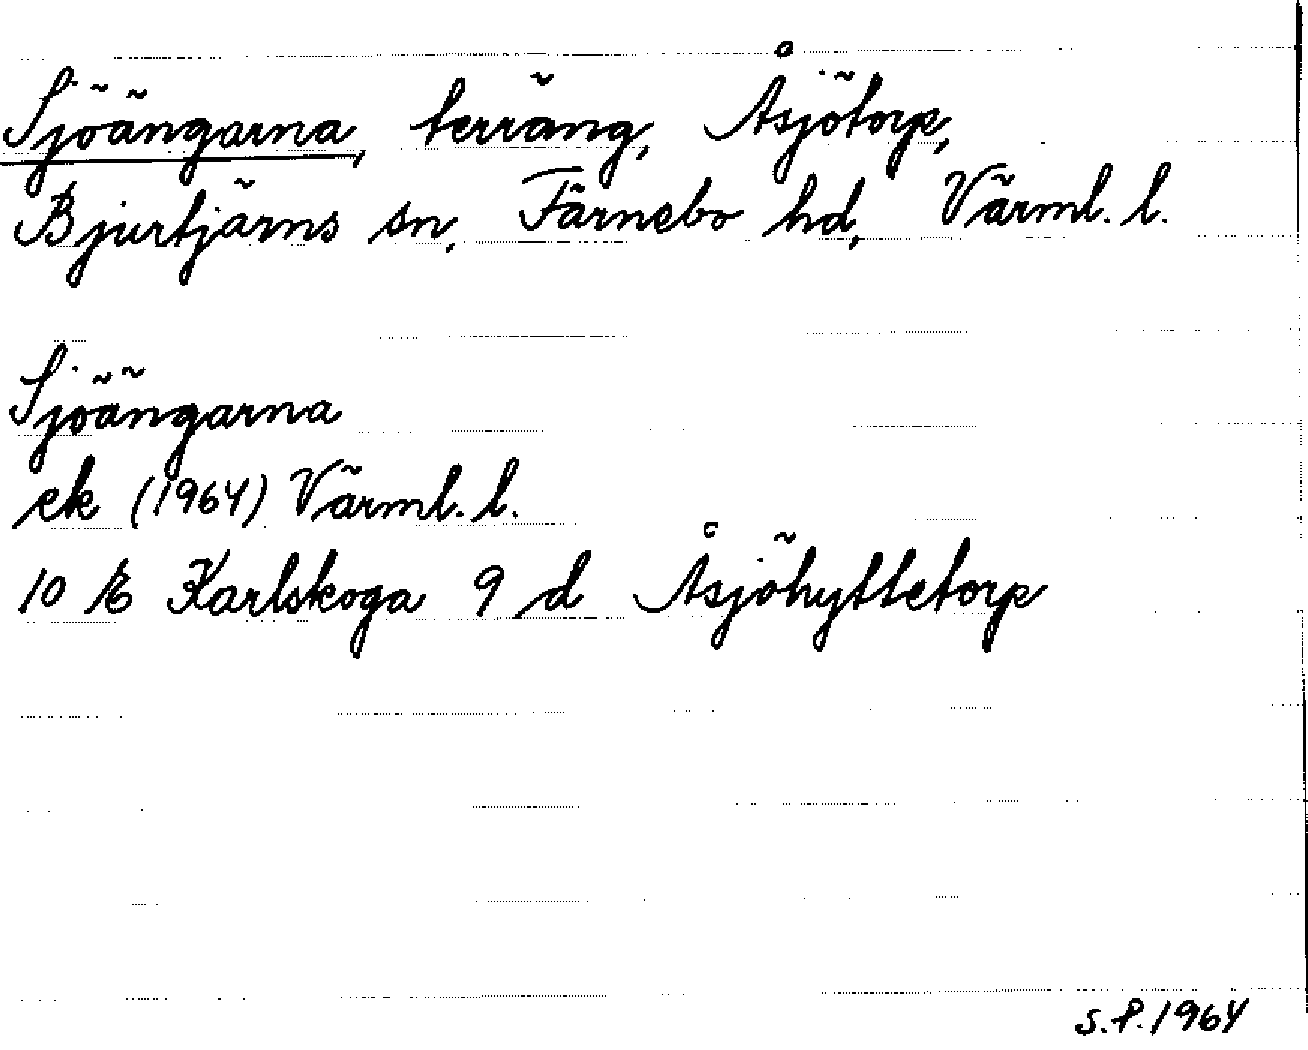 Sjöängarna, terräng, Åsjötorp,
Bjurtjärns sn, Färnebo hd, Värml. l.
Sjöängarna
ek (1964) Värml. l.
10 E Karlskoga 9 d Åsjöhyttetorp
S.P. 1964